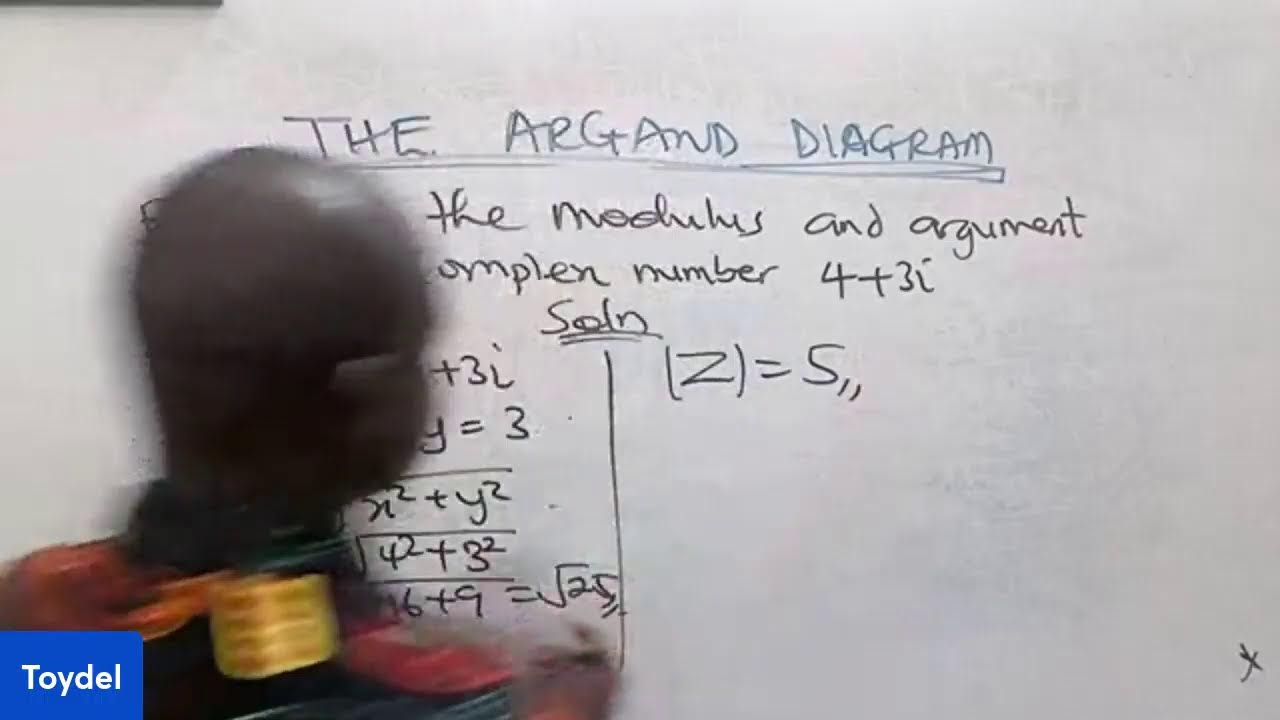 THE ARGAND DIAGRAM
the modulus and argument
omplex number 4+3i
Soln
+3i
y = 3
x² + y²
√4² + 3²
16+9 = √25,,
|Z| = 5,,
Toydel